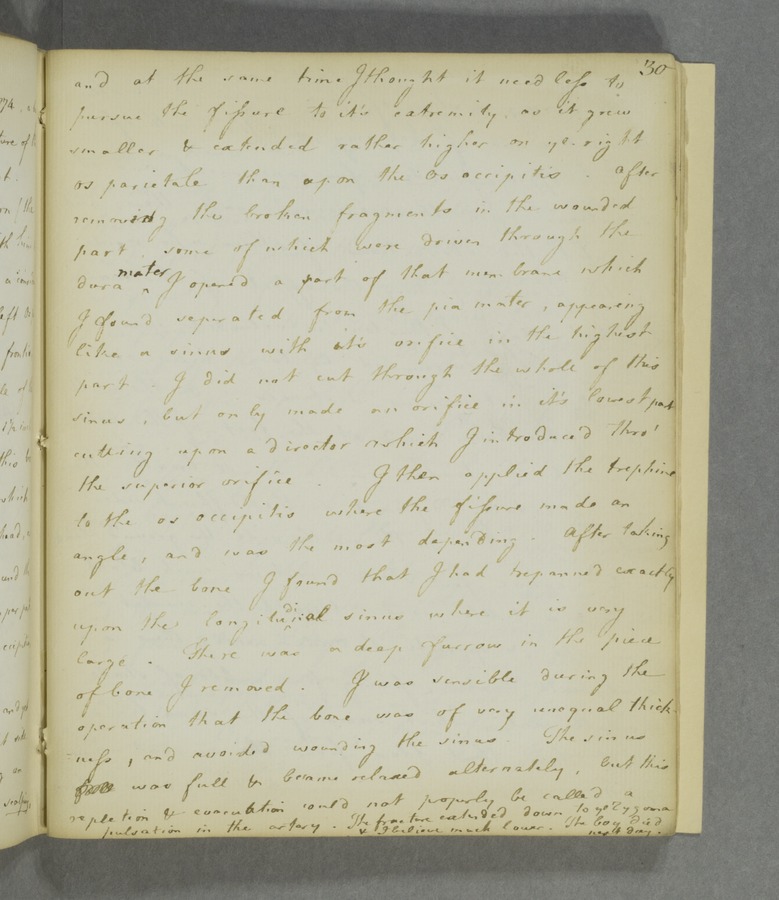 30
and at the same time I thought it needless to
pursue the fissure to it's extremity, as it grew
smaller & extended rather higher on ye. right
os parietale than upon the os occipitis. After
removing the broken fragments in the wounded
part some of which were driven through the
dura mater I opened a part of that membrane which
I found separated from the pia mater, appearing
like a sinus with it's orifice in the highest
part. I did not cut through the whole of this
sinus, but only made an orifice in it's lowest part
cutting upon a director which I introduced thro'
the superior orifice. I then applied the trephine
to the os occipitis where the fissure made an
angle, and was the most depending. After taking
out the bone I found that I had trepanned exactly
upon the longitudinal sinus where it is very
large. There was a deep furrow in the piece
of bone I removed. I was sensible during the
operation that the bone was of very unequal thick-
ness, and avoided wounding the sinus. The sinus
was full & became relaxed alternately, but this
repletion & evacuation could not properly be called a
pulsation in the artery. The fracture extended down to ye Zygoma
& I believe much lower. The boy died
next day.